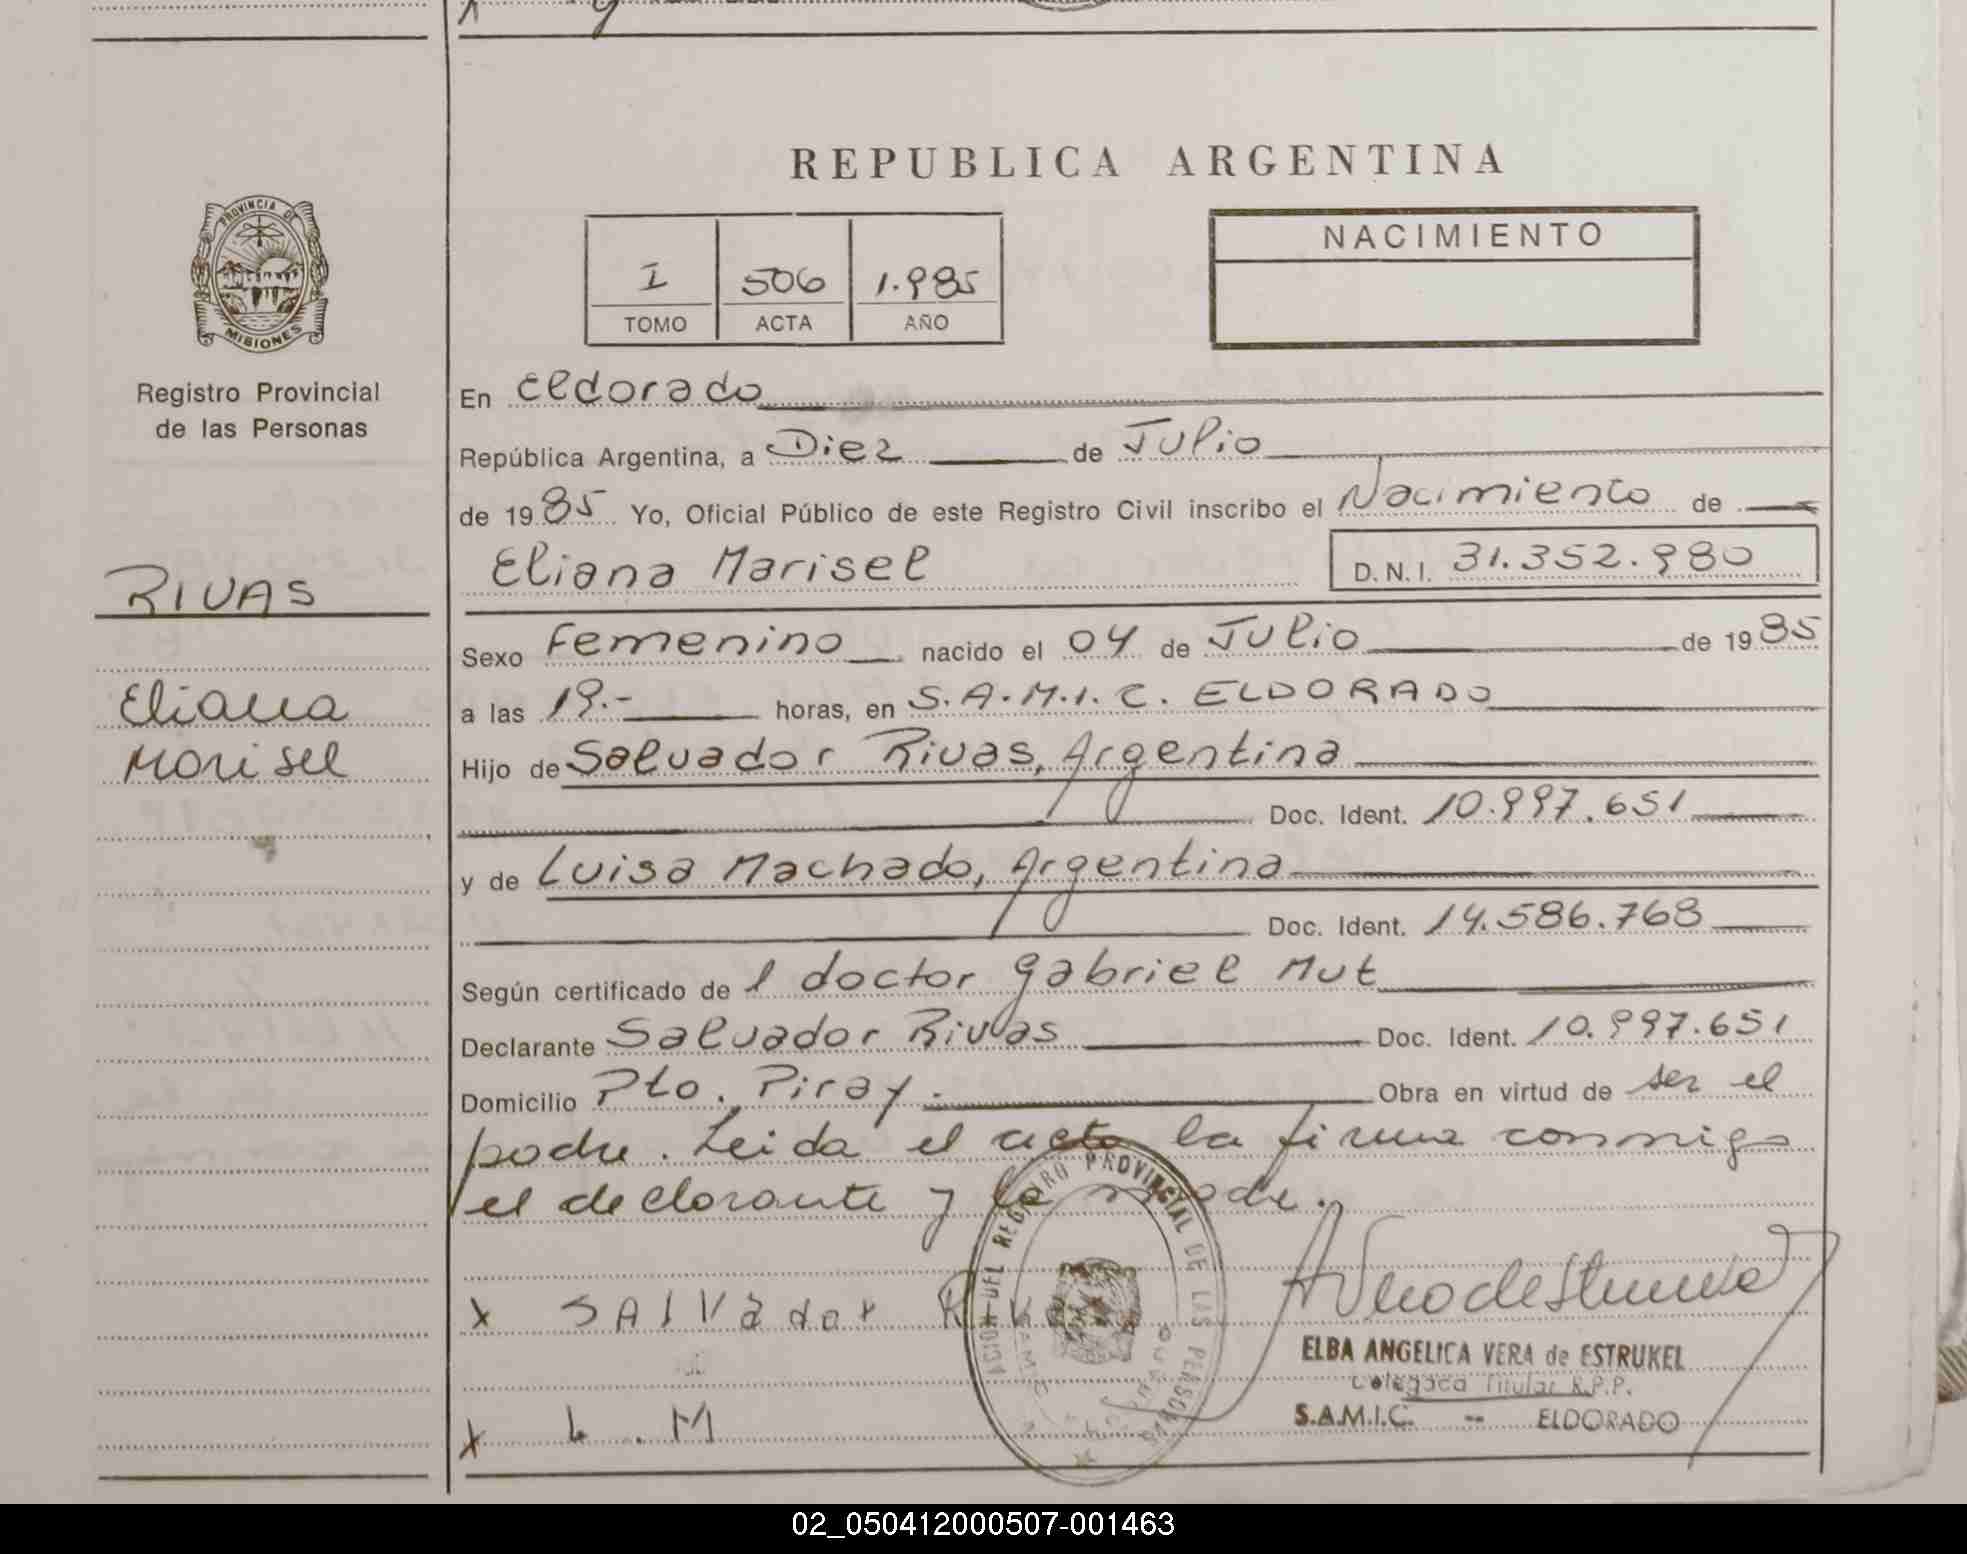 REPUBLICA ARGENTINA
PROVINCIA DE
MISIONES
Registro Provincial
de las Personas
I 506 1.985
TOMO ACTA AÑO
NACIMIENTO
RIVAS
Eliana
Marisel
En Eldorado
República Argentina, a Diez de Julio
de 1985 Yo, Oficial Público de este Registro Civil inscribo el Nacimiento de
Eliana Marisel D.N.I. 31.352.980
Sexo Femenino nacido el 04 de Julio de 1985
a las 19.- horas, en S.A.M.I.C. ELDORADO
Hijo de Salvador Rivas, Argentina
Doc. Ident. 10.997.651
y de Luisa Machado, Argentina
Doc. Ident. 14.586.768
Según certificado de l doctor Gabriel Mut
Declarante Salvador Rivas Doc. Ident. 10.997.651
Domicilio Pto. Piray. Obra en virtud de ser el
padre. Leida el acta la firma conmigo
el declarante y la madre.
x SALVador
x L.M
REGISTRO PROVINCIAL DE LAS PERSONAS
ELBA ANGELICA VERA de ESTRUKEL
Titular R.P.P.
S.A.M.I.C. -- ELDORADO
02_050412000507-001463